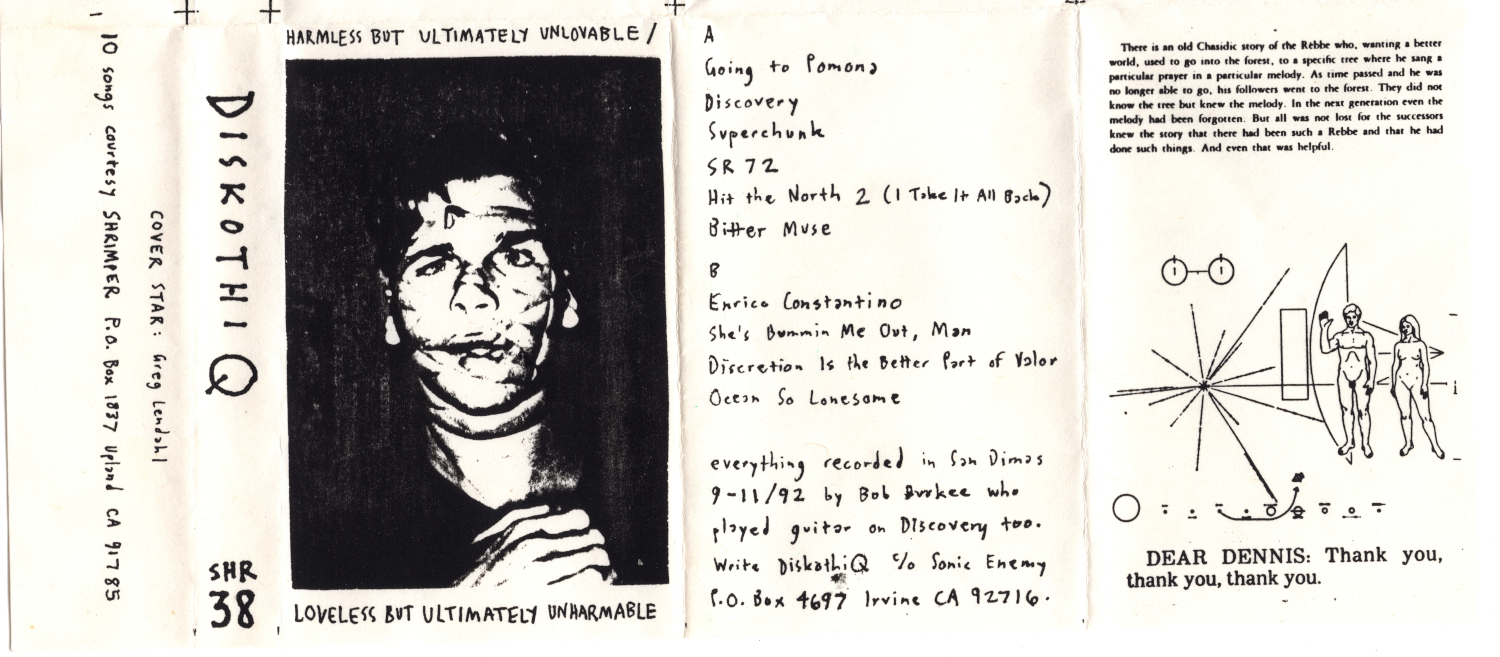 10 songs courtesy SHRIMPER P.O. Box 1837 Upland CA 91785
COVER STAR: Greg Lendahl
DISKOTHI Q
SHR
38
HARMLESS BUT ULTIMATELY UNLOVABLE /
LOVELESS BUT ULTIMATELY UNHARMABLE
A
Going to Pomona
Discovery
Superchunk
SR 72
Hit the North 2 (I Take It All Back)
Bitter Muse
B
Enrico Constantino
She's Bummin Me Out, Man
Discretion Is the Better Part of Valor
Ocean So Lonesome
everything recorded in San Dimas
9-11/92 by Bob who
played guitar on Discovery too.
Write DiskothiQ c/o Sonic Enemy
P.O. Box 4697 Irvine CA 92716.
There is an old Chasidic story of the Rebbe who, wanting a better
world, used to go into the forest, to a specific tree where he sang a
particular prayer in a particular melody. As time passed and he was
no longer able to go, his followers went to the forest. They did not
know the tree but knew the melody. In the next generation even the
melody had been forgotten. But all was not lost for the successors
knew the story that there had been such a Rebbe and that he had
done such things. And even that was helpful.
DEAR DENNIS: Thank you,
thank you, thank you.